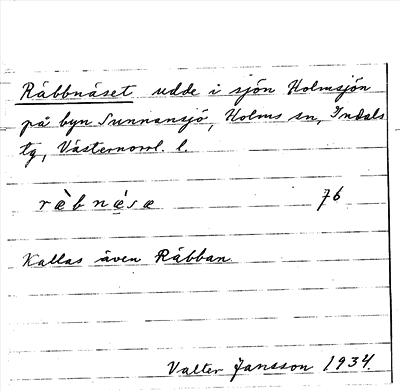 Räbbnäset udde i sjön Holmsjön
på byn Sunnansjö, Holms sn, Indals
tg, Västernorrl. l.
ræ̀bnǽ̣sæ 76
Kallas även Räbban
Valter Jansson 1934.